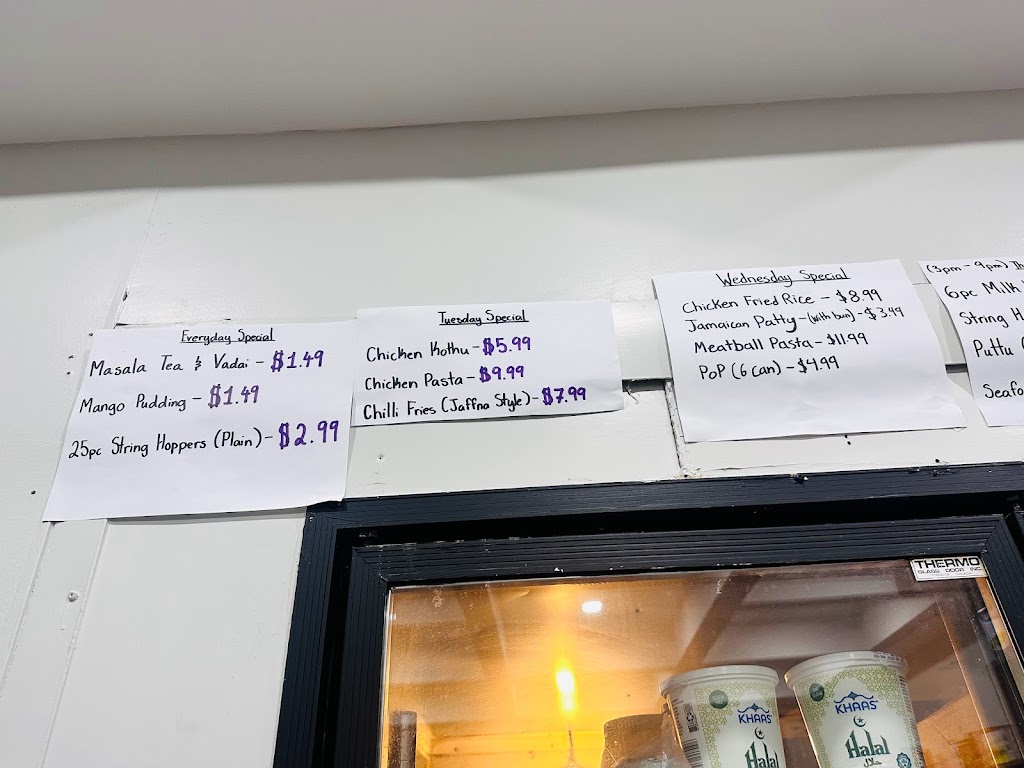 Everyday Special
Masala Tea & Vadai - $1.49
Mango Pudding - $1.49
25pc String Hoppers (Plain) - $2.99
Tuesday Special
Chicken Kothu - $5.99
Chicken Pasta - $9.99
Chilli Fries (Jaffna Style) - $7.99
Wednesday Special
Chicken Fried Rice - $8.99
Jamaican Patty - (with bun) - $3.49
Meatball Pasta - $11.99
PoP (6 can) - $4.99
(3pm - 9pm) Th
6pc Milk
String H
Puttu (
Seafo
THERMO
GLASS DOOR INC
KHAAS
Halal
حلال
KHAAS
Halal